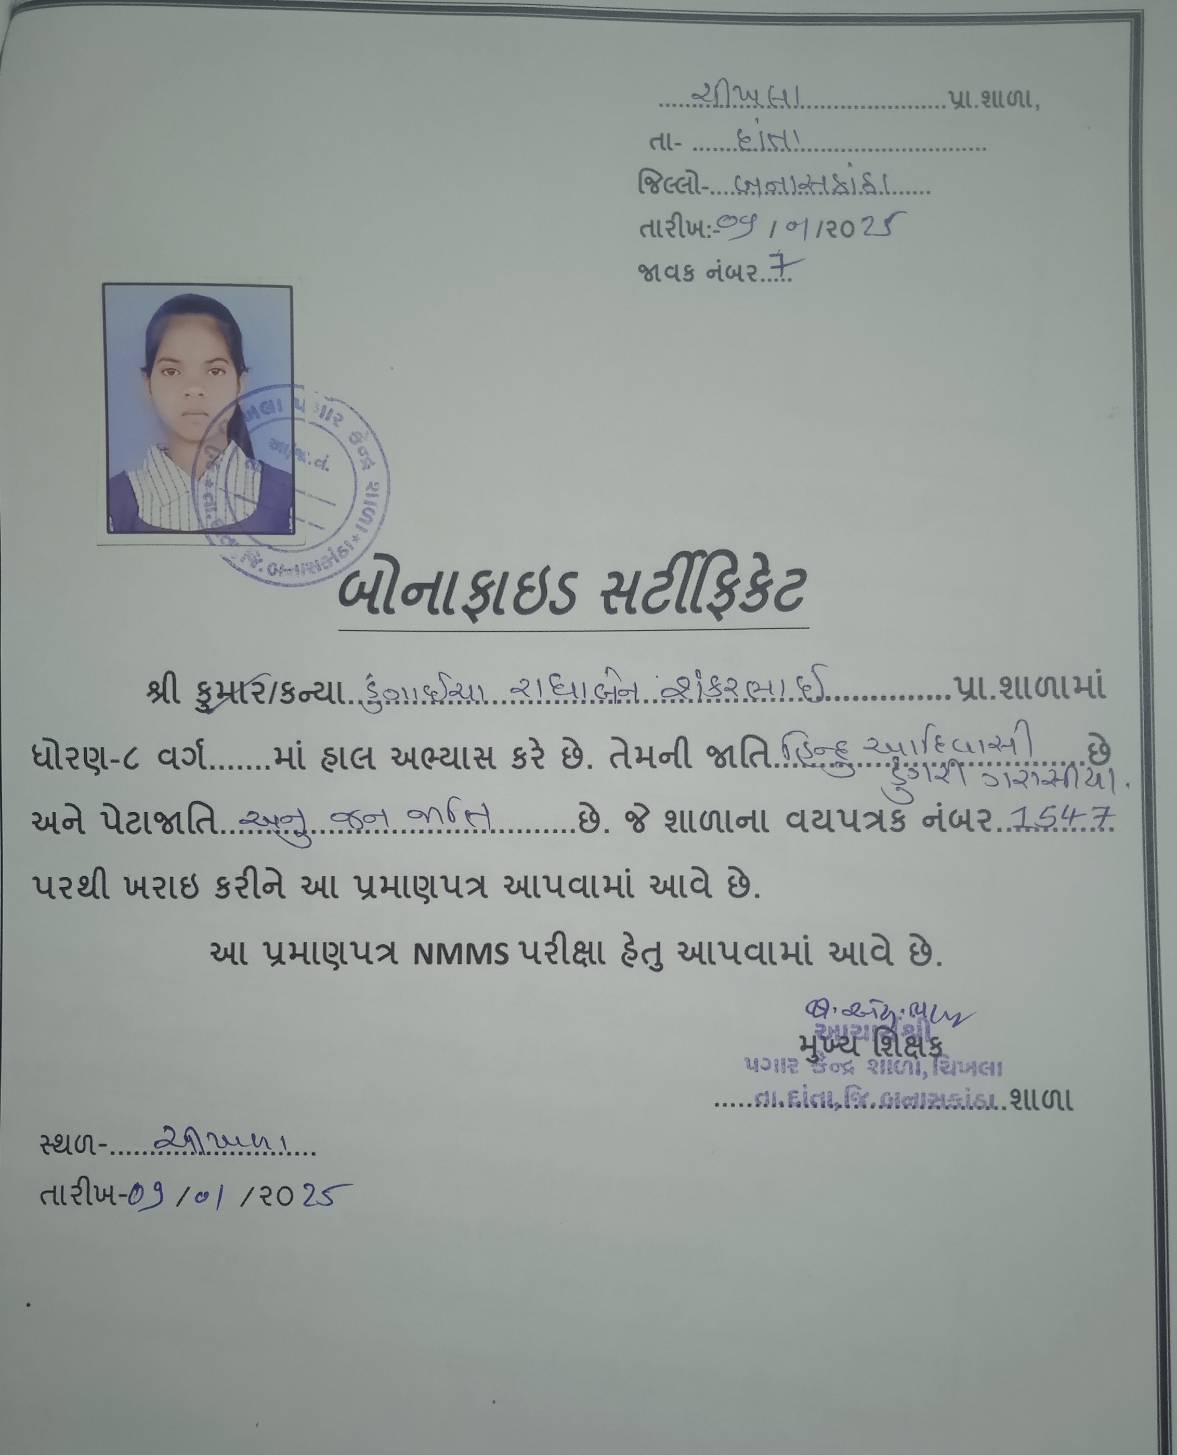 ચીખલા પ્રા.શાળા,
તા- દાંતા
જિલ્લો- બનાસકાંઠા
તારીખ:-09/01/2025
જાવક નંબર 7
પગાર કેન્દ્ર શાળા
જિ.બનાસકાંઠા
બોનાફાઇડ સર્ટીફિકેટ
શ્રી કુમાર/કન્યા ડુંગાઈચા રાધાબેન શંકરભાઈ પ્રા.શાળામાં
ધોરણ-૮ વર્ગ.......માં હાલ અભ્યાસ કરે છે. તેમની જાતિ હિન્દુ આદિવાસી છે
ડુંગરી ગરાસીયા.
અને પેટાજાતિ અનુ જન જાતિ છે. જે શાળાના વયપત્રક નંબર 1547
પરથી ખરાઇ કરીને આ પ્રમાણપત્ર આપવામાં આવે છે.
આ પ્રમાણપત્ર NMMS પરીક્ષા હેતુ આપવામાં આવે છે.
આચાર્યશ્રી
મુખ્ય શિક્ષક
પગાર કેન્દ્ર શાળા, ચિખલા
તા.દાંતા, જિ.બનાસકાંઠા. શાળા
સ્થળ- ચીખલા
તારીખ-09/01/2025